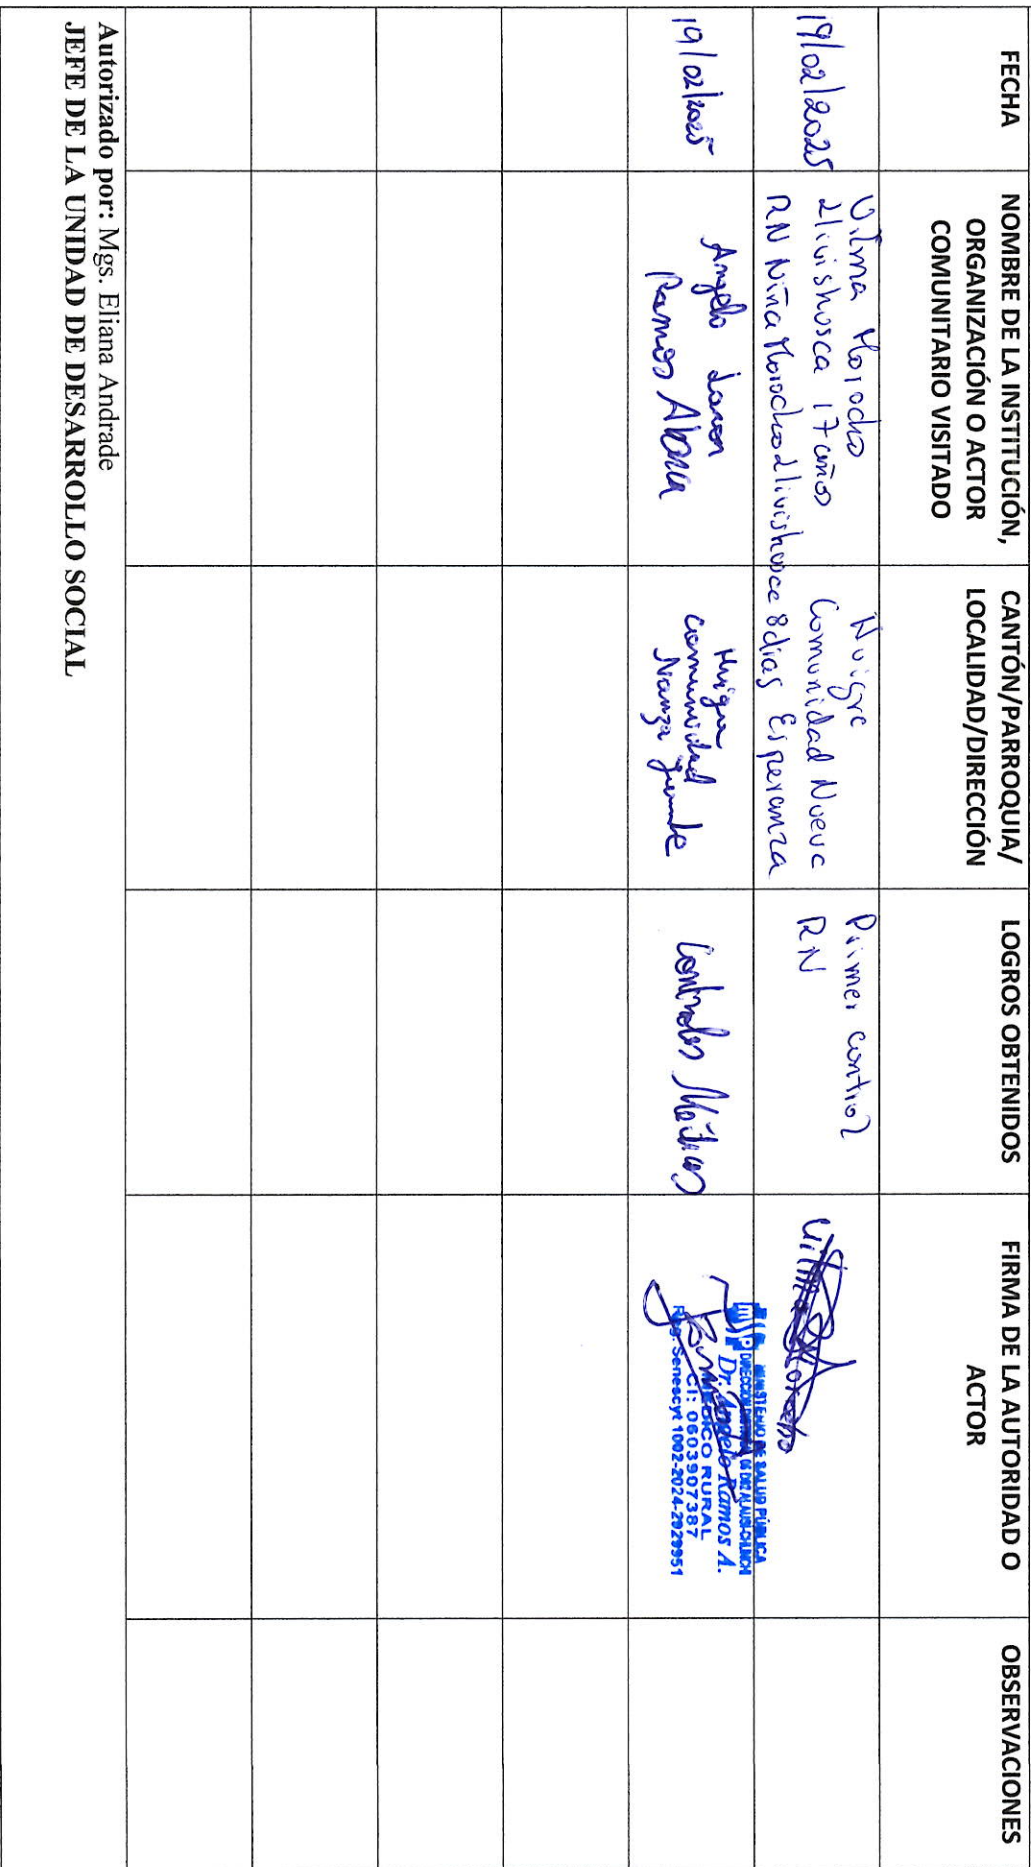 FECHA
NOMBRE DE LA INSTITUCIÓN,
ORGANIZACIÓN O ACTOR
COMUNITARIO VISITADO
CANTÓN/PARROQUIA/
LOCALIDAD/DIRECCIÓN
LOGROS OBTENIDOS
FIRMA DE LA AUTORIDAD O
ACTOR
OBSERVACIONES
19/02/2025
Vilma Morocho
Llivishusca 17 años
RN Niña Morocho Llivishusca 8 dias
Huigra
Comunidad Nueva
Esperanza
Primer control
RN
Vilma Morocho
19/02/2025
Angelo
Ramos
Huigra
Comunidad
Controles Médicos
MINISTERIO DE SALUD PÚBLICA
MSP
Dr. Angelo Ramos A.
MEDICO RURAL
CI: 0603907387
Reg. Senescyt 1002-2024-2929951
Autorizado por: Mgs. Eliana Andrade
JEFE DE LA UNIDAD DE DESARROLLO SOCIAL